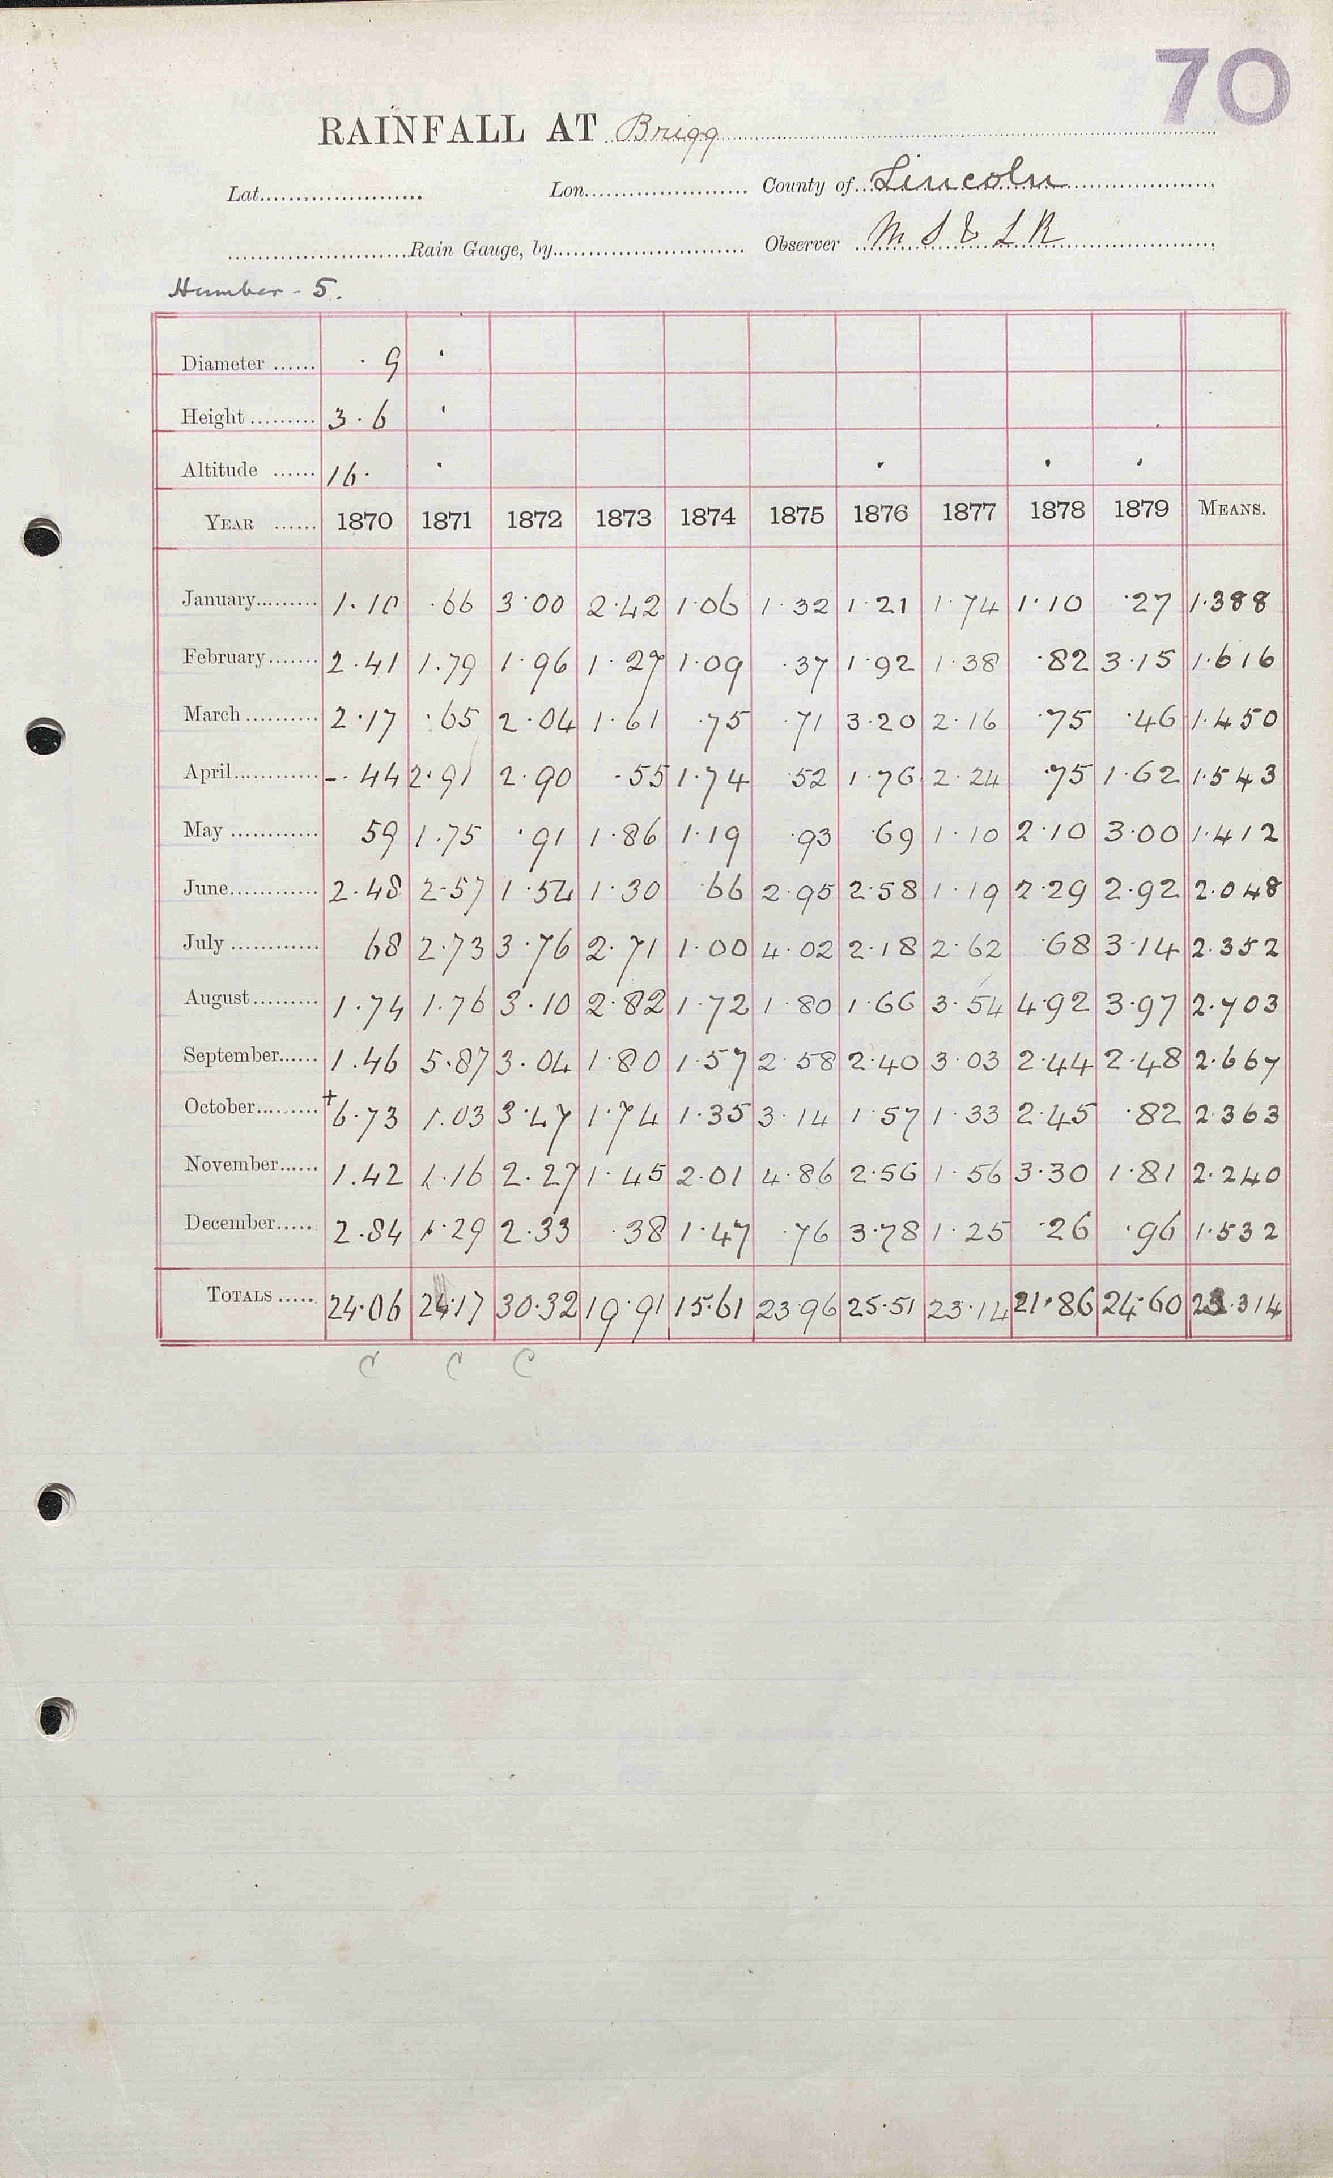 70
RAINFALL AT Brigg
Lat. Lon. County of Lincoln
Rain Gauge, by Observer M S & L R
Humber - 5.
Diameter ...... · 9 ·
Height ......... 3·6 ·
Altitude ...... 16· · · · ·
YEAR ...... 1870 1871 1872 1873 1874 1875 1876 1877 1878 1879 MEANS.
January......... 1·10 ·66 3·00 2·42 1·06 1·32 1·21 1·74 1·10 ·27 1·388
February....... 2·41 1·79 1·96 1·27 1·09 ·37 1·92 1·38 ·82 3·15 1·616
March .......... 2·17 ·65 2·04 1·61 ·75 ·71 3·20 2·16 ·75 ·46 1·450
April............ -·44 2·91 2·90 ·55 1·74 ·52 1·76 2·24 ·75 1·62 1·543
May ............ 59 1·75 ·91 1·86 1·19 ·93 ·69 1·10 2·10 3·00 1·412
June............ 2·48 2·57 1·54 1·30 ·66 2·95 2·58 1·19 2·29 2·92 2·048
July ............ 68 2·73 3·76 2·71 1·00 4·02 2·18 2·62 ·68 3·14 2·352
August......... 1·74 1·76 3·10 2·82 1·72 1·80 1·66 3·54 4·92 3·97 2·703
September...... 1·46 5·87 3·04 1·80 1·57 2·58 2·40 3·03 2·44 2·48 2·667
October......... +6·73 1·03 3·47 1·74 1·35 3·14 1·57 1·33 2·45 ·82 2·363
November...... 1·42 1·16 2·27 1·45 2·01 4·86 2·56 1·56 3·30 1·81 2·240
December..... 2·84 1·29 2·33 ·38 1·47 ·76 3·78 1·25 ·26 ·96 1·532
TOTALS ..... 24·06 24·17 30·32 19·91 15·61 23·96 25·51 23·14 21·86 24·60 23·314
C C C